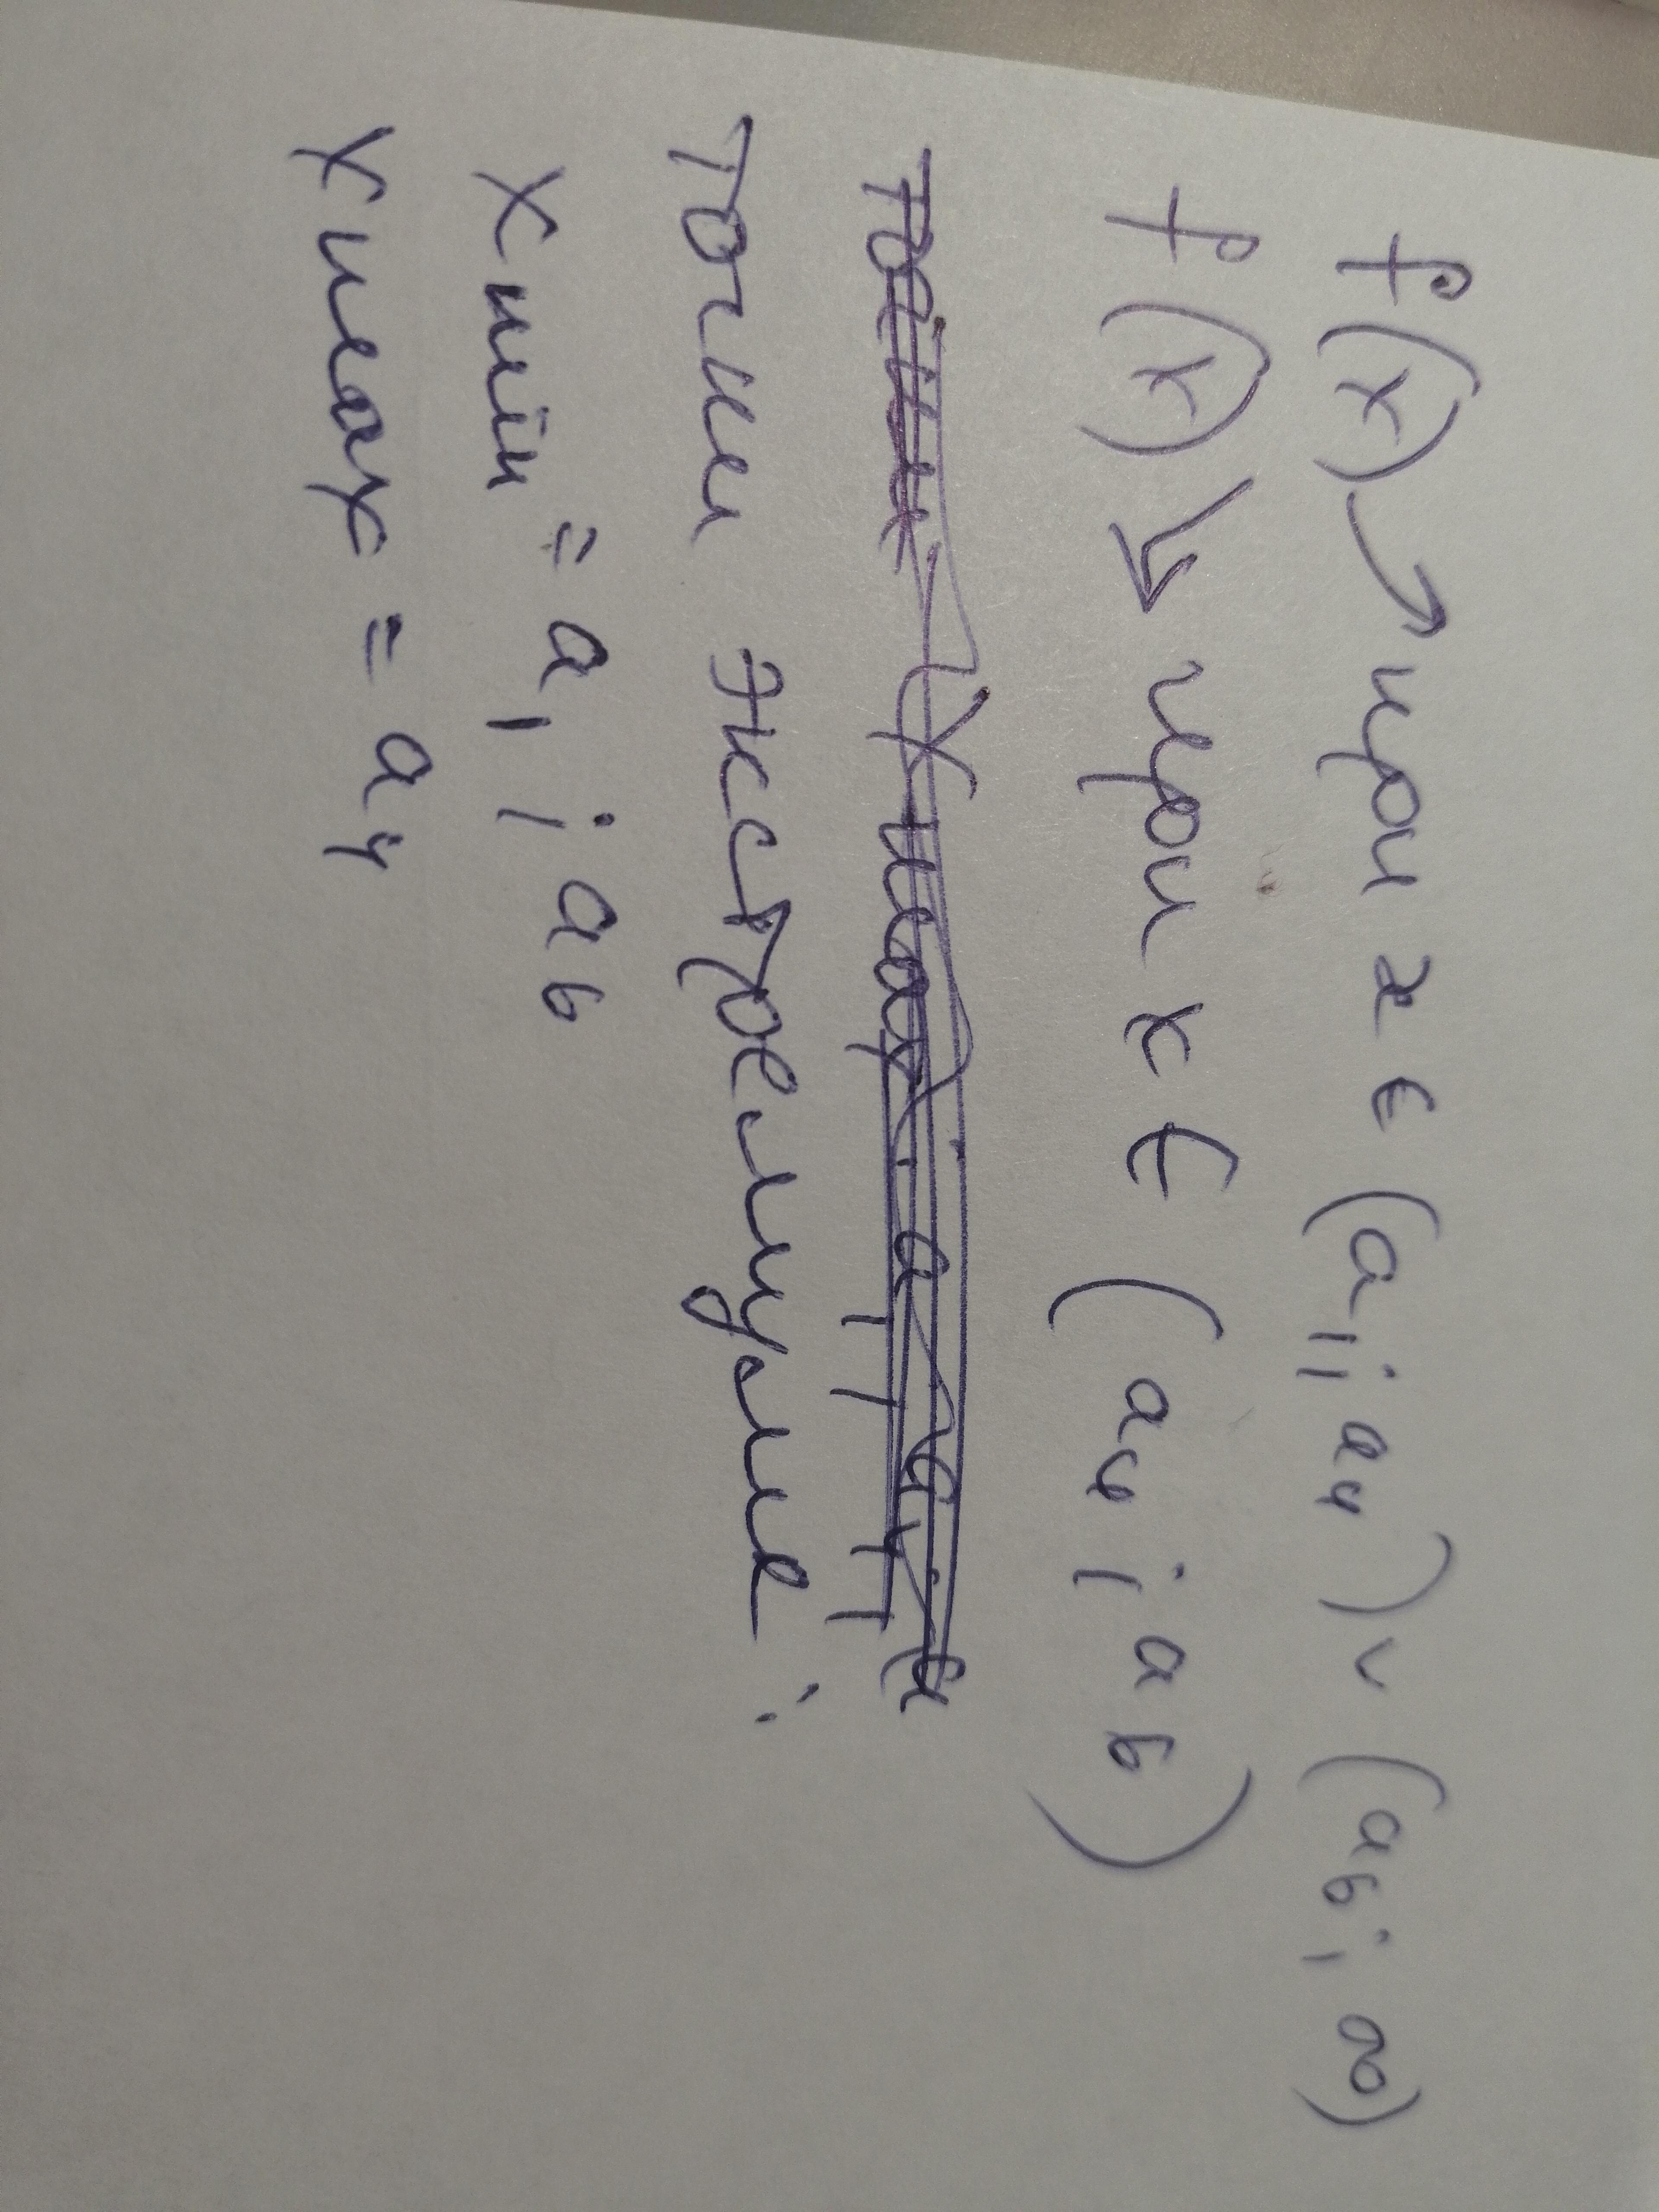 f(x) ↗ при x ∈ (a₁; a₄) ∪ (a₆; ∞)
f(x) ↘ при x ∈ (a₄; a₆)
точки экстремума:
x min = a₁; a₆
x max = a₄